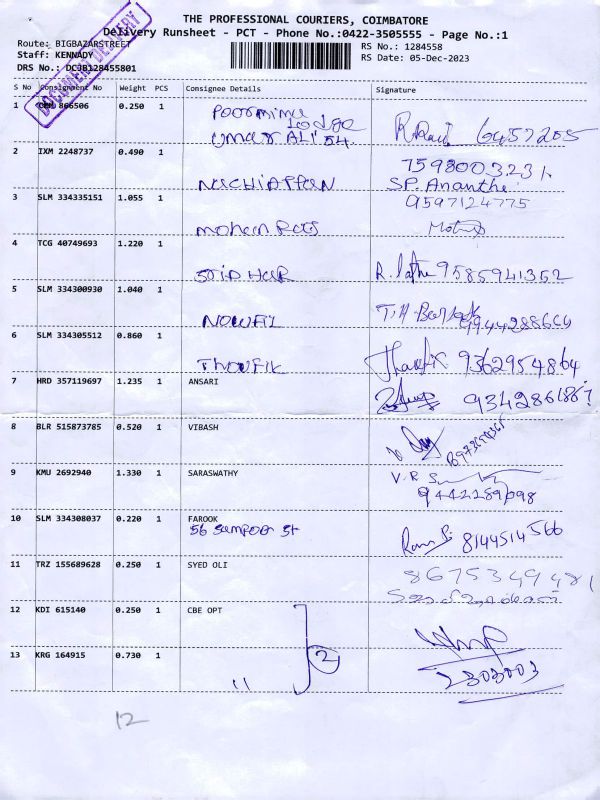 THE PROFESSIONAL COURIERS, COIMBATORE
Delivery Runsheet - PCT - Phone No.:0422-3505555 - Page No.:1
Route: BIGBAZARSTREET
RS No.: 1284558
Staff: KENNADY
RS Date: 05-Dec-2023
DRS No.: DCJB128455801
DOCUMENT DELIVERY
S No Consignment No Weight PCS Consignee Details Signature
1 866506 0.250 1 Poornima
Lodge
Umar ALI 54. 6457205
2 IXM 2248737 0.490 1 NACHIAPPAN 7598003231
SP. Ananthi
3 SLM 334335151 1.055 1 mohan Raj 9597124775
4 TCG 40749693 1.220 1 R. Latha 9585941352
5 SLM 334300930 1.040 1 NOWFIL
6 SLM 334305512 0.860 1 THOUFIK 9362954864
7 HRD 357119697 1.235 1 ANSARI
8 BLR 515873785 0.520 1 VIBASH
9 KMU 2692940 1.330 1 SARASWATHY V.R
9442289098
10 SLM 334308037 0.220 1 FAROOK
56 St 8144514566
11 TRZ 155689628 0.250 1 SYED OLI 8675349481
12 KDI 615140 0.250 1 CBE OPT
13 KRG 164915 0.730 1 " 2 2303003
12